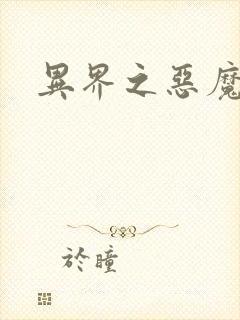 異界之惡魔
於瞳